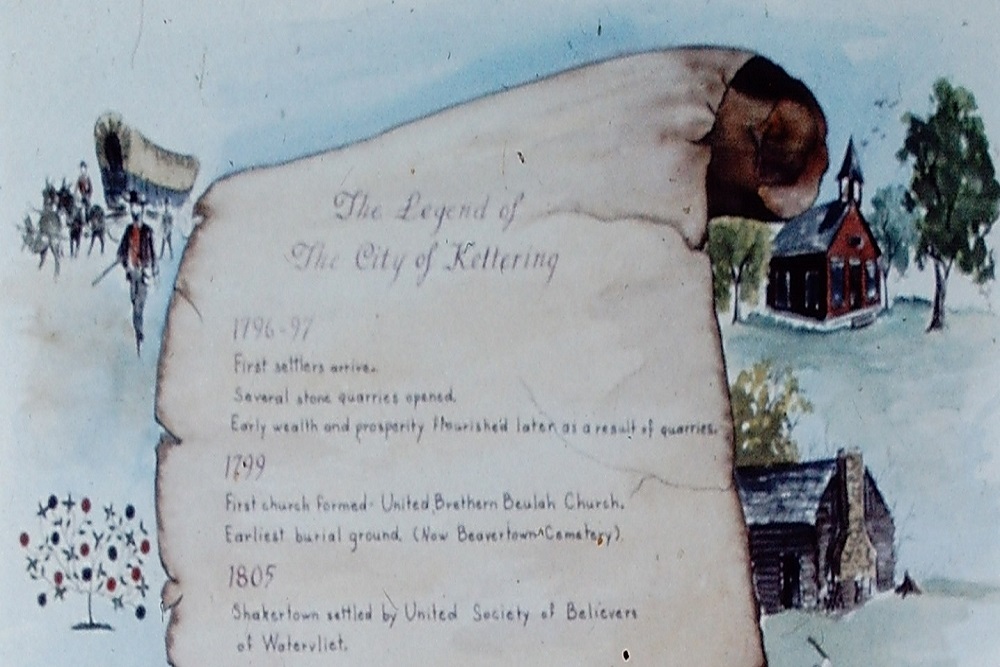 The Legend of
The City of Kettering
1796-97
First settlers arrive.
Several stone quarries opened.
Early wealth and prosperity flourished later as a result of quarries.
1799
First church formed- United Brethern Beulah Church.
Earliest burial ground. (Now Beavertown Cemetery).
1805
Shakertown settled by United Society of Believers
of Watervliet.